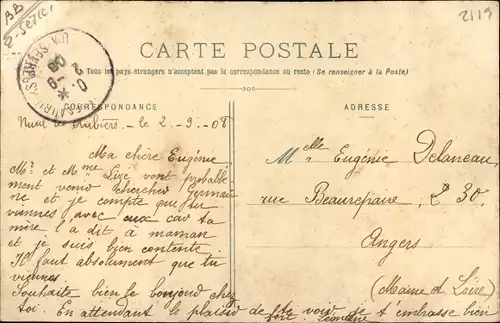 BB
2-Sèvres
2119
CARTE POSTALE
Tous les pays étrangers n'acceptent pas la correspondance au recto (Se renseigner à la Poste)
CORRESPONDANCE
ADRESSE
Nueil les Aubiers le 2-9-08
Ma chère Eugénie
Mr et Mme Lizé vont probable-
ment venir chercher Germai
ne et je compte que tu
viennes avec eux car ta
mère l'a dit à maman
et je suis bien contente.
Il faut absolument que tu
viennes.
Souhaite bien le bonjour chez
toi. En attendant le plaisir de te voir je t'embrasse bien
fort. Léontine
Melle Eugénie Delaneau,
rue Beaurepaire, 30.
Angers
(Maine et Loire)